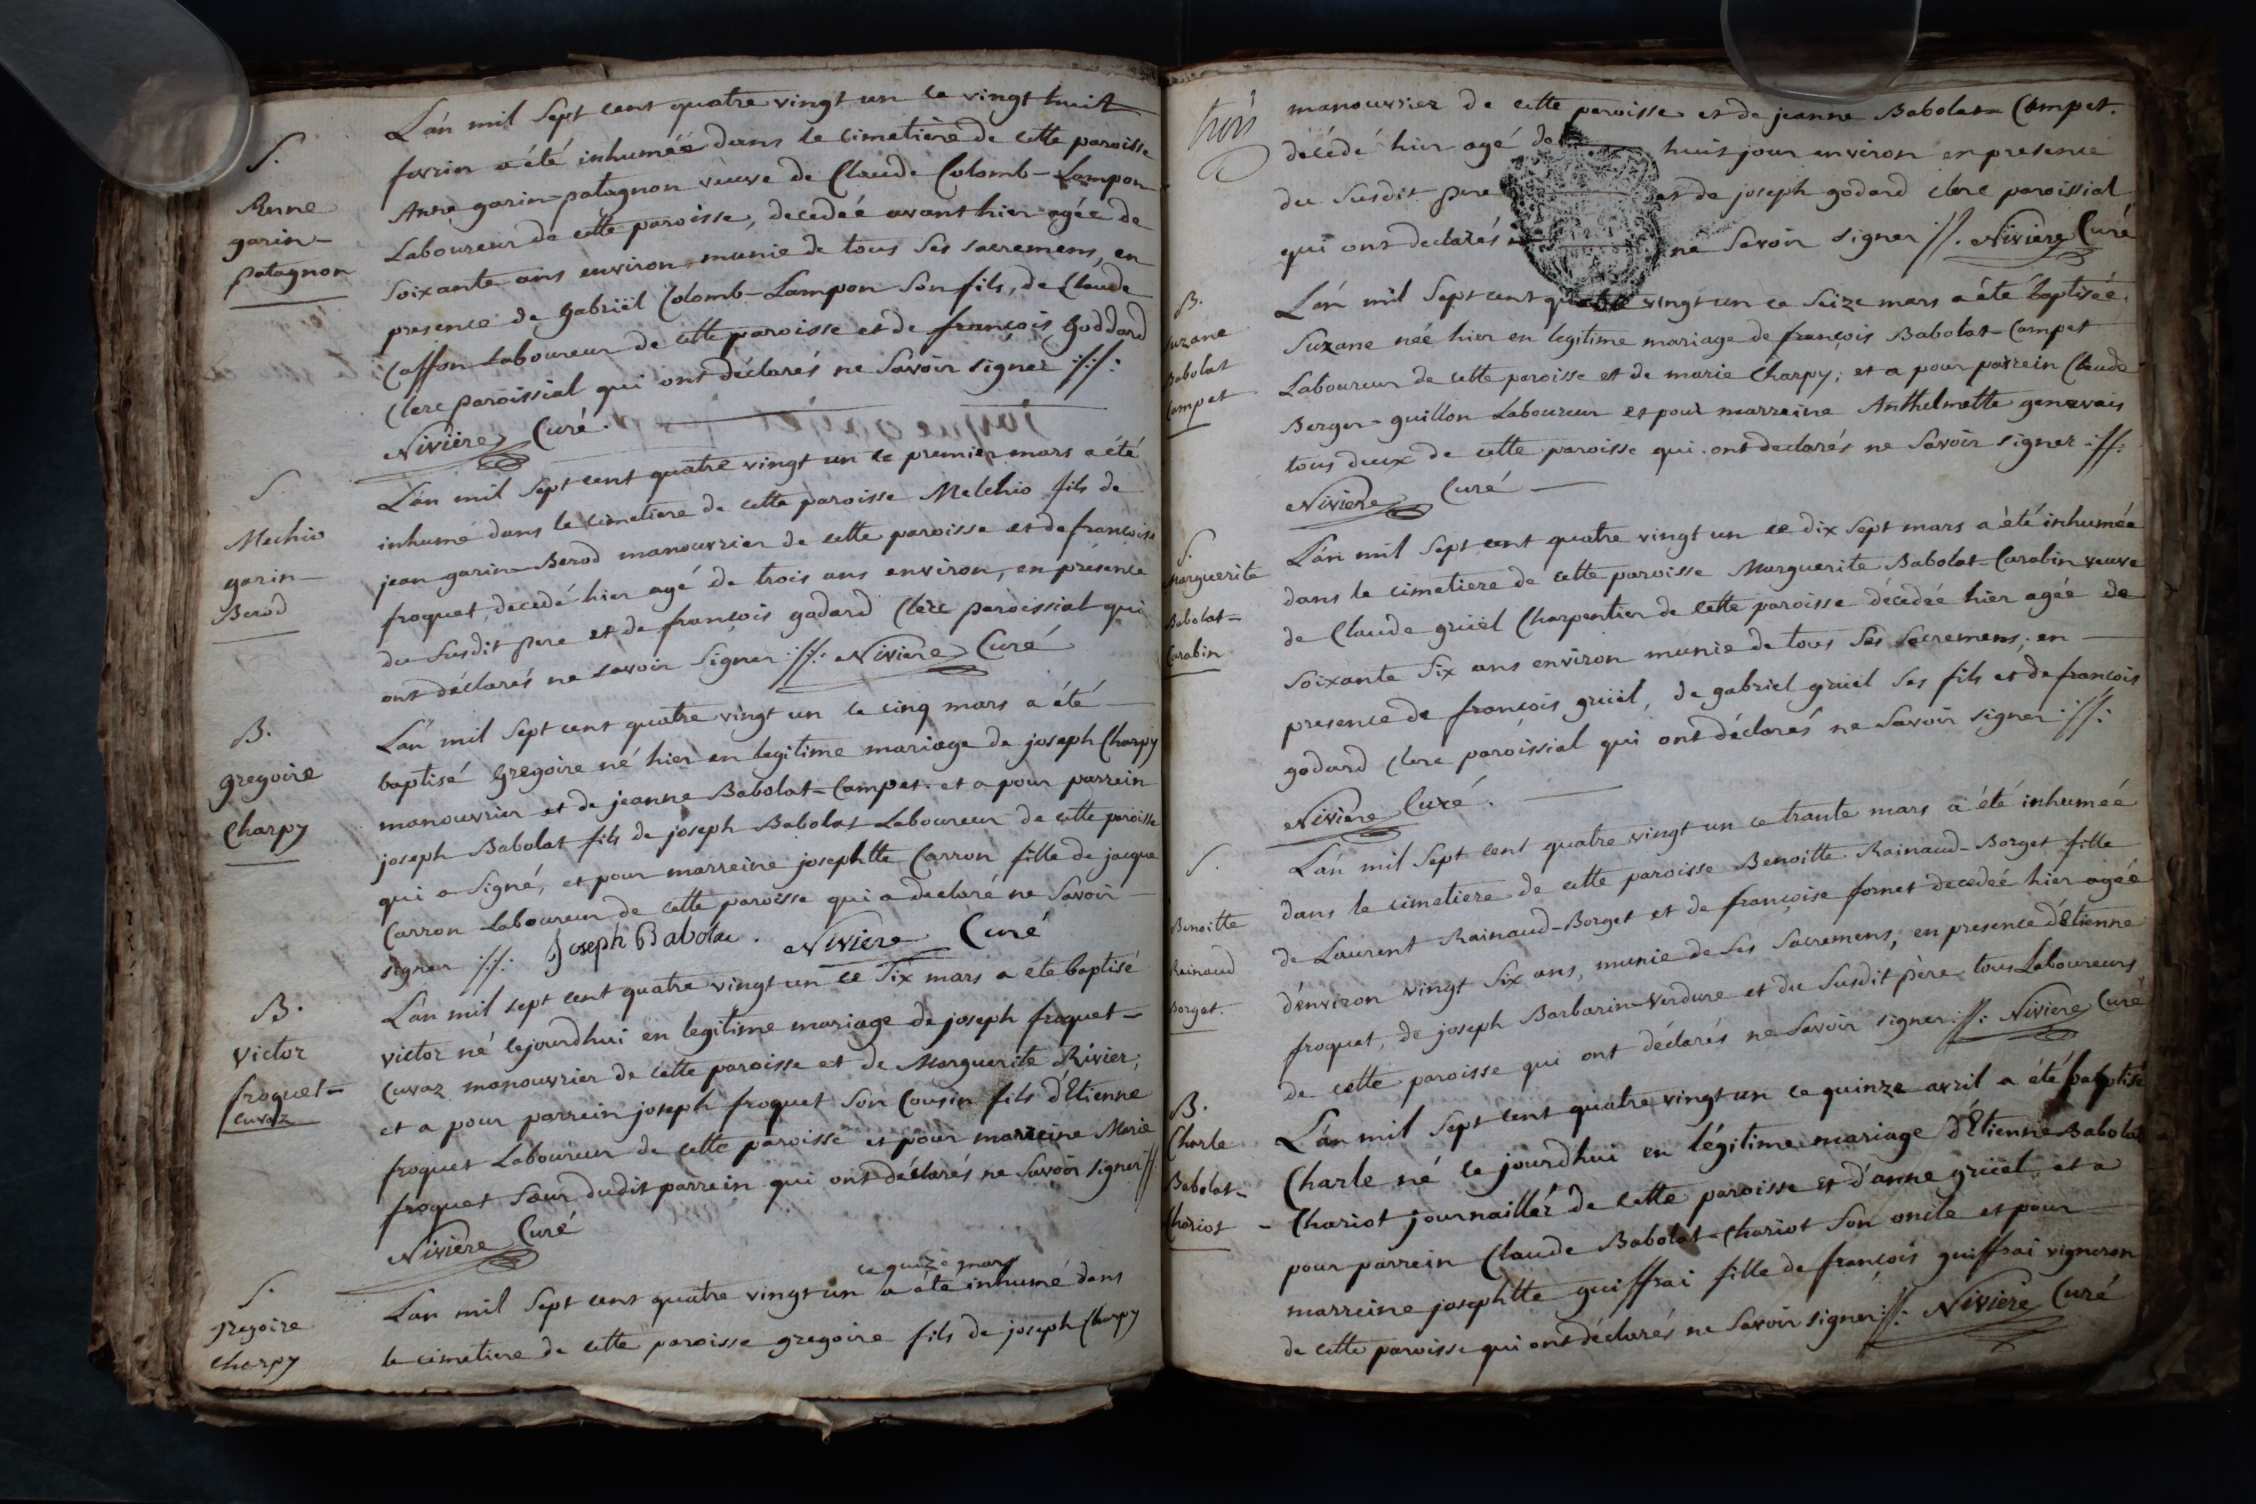 S.
Anne
garin-
patagnon
L'an mil Sept cent quatre vingt un le vingt huit
fevrier a été inhumée dans le cimetière de cette paroisse
Anne garin-patagnon veuve de Claude Colomb-Lampon
Laboureur de cette paroisse, decedée avant hier agée de
soixante ans environ, munie de tous ses sacremens, en
presence de Gabriël Colomb-Lampon son fils, de Claude
Caffon Laboureur de cette paroisse et de françois Goddard
Clerc paroissial qui ont déclarés ne Savoir signer ://:
Nivière Curé.
S.
Mechio
garin-
Berod
L'an mil Sept cent quatre vingt un le premier mars a été
inhumé dans le cimetiere de cette paroisse Melchio fils de
jean garin-Berod manouvrier de cette paroisse et de françoise
froquet, decedé hier agé de trois ans environ, en présence
du susdit pere et de françois godard Clerc paroissial qui
ont déclarés ne savoir signer ://: Niviere Curé
B.
gregoire
Charpy
L'an mil Sept cent quatre vingt un le cinq mars a été
baptisé Gregoire né hier en legitime mariage de joseph Charpy
manouvrier et de jeanne Babolat-Campet. et a pour parrein
joseph Babolat fils de joseph Babolat Laboureur de cette paroisse
qui a signé, et pour marreine josephtte Carron fille de jacque
Carron Laboureur de cette paroisse qui a declaré ne Savoir
signer ://: Joseph Babola. Niviere Curé
B.
Victor
froquet-
Cuvaz
L'an mil sept cent quatre vingt un ce Six mars a été baptisé
victor né cejourdhui en legitime mariage de joseph froquet-
Cuvaz manouvrier de cette paroisse et de Marguerite Rivier;
et a pour parrein joseph froquet Son Cousin fils d'Etienne
froquet Laboureur de cette paroisse et pour marreine Marie
froquet Sœur dudit parrein qui ont déclarés ne Savoir signer //
Nivière Curé
S.
gregoire
Charpy
ce quinze mars
L'an mil Sept cent quatre vingt un a été inhumé dans
le cimetiere de cette paroisse gregoire fils de joseph Charpy
trois
manouvrier de cette paroisse et de jeanne Babolat-Campet.
décédé hier agé de huit jour environ en presence
du Susdit pere et de joseph godard clerc paroissial
qui ont declarés ne Savoir signer //. Niviere Curé
B.
Suzane
Babolat
Campet
L'an mil Sept cent quatre vingt un ce Seize mars a été baptisée
Suzane née hier en legitime mariage de françois Babolat-Campet
Laboureur de cette paroisse et de marie Charpy; et a pour parrein Claude
Berger-guillon Laboureur et pour marreine Anthelmette genevais
tous deux de cette paroisse qui ont declarés ne Savoir signer ://:
Niviere Curé
S.
Marguerite
Babolat-
Carabin
L'an mil Sept cent quatre vingt un ce dix sept mars a été inhumée
dans le cimetiere de cette paroisse Marguerite Babolat-Carabin veuve
de Claude gruël Charpentier de cette paroisse décedée hier agée de
soixante Six ans environ munie de tous Ses Sacremens, en
presence de françois gruël, de gabriel gruël ses fils et de françois
godard clerc paroissial qui ont déclarés ne Savoir signer ://:
Niviere Curé.
S.
Benoitte
Rainaud
Borget.
L'an mil Sept cent quatre vingt un ce trante mars a été inhumée
dans le cimetiere de cette paroisse Benoitte Rainaud-Borget fille
de Laurent Rainaud-Borget et de françoise fornet decedée hier agée
d'environ vingt Six ans, munie de Ses Sacremens, en presence d'Etienne
froquet, de joseph Barbarin-Verdure et du Susdit père, tous Laboureurs
de cette paroisse qui ont déclarés ne Savoir signer ://: Niviere Curé
B.
Charle
Babolat-
Chariot
L'an mil Sept cent quatre vingt un ce quinze avril a été baptisé
Charle né ce jourdhui en légitime mariage d'Etienne Babolat
Chariot journaillér de cette paroisse et d'anne gruël et a
pour parrein Claude Babolat-Chariot Son oncle et pour
marreine josephtte guiffrai fille de françois guiffrai vigneron
de cette paroisse qui ont déclarés ne Savoir signer ://: Niviere Curé